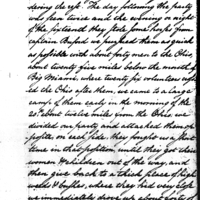 dering the rest. The day following the party
was seen twice and the evening or night
of the fifteenth they stole some horses from
captain Buford we pursued them as quick
as possible with about forty men to the Ohio
about twenty five miles below the mouth of
Big Miami, where twenty six volunteers crossed
the Ohio after them, we came to a large
camp of them early in the morning of the
20th about twelve miles from the Ohio, we
divided our party and attacked them op-
posite on each side, they fought us some
time in that position, until they got their
women & children out of the way, and
then give back to a thick place of high
weeds & bushes, where they had very close
we immediately drove up about forty of